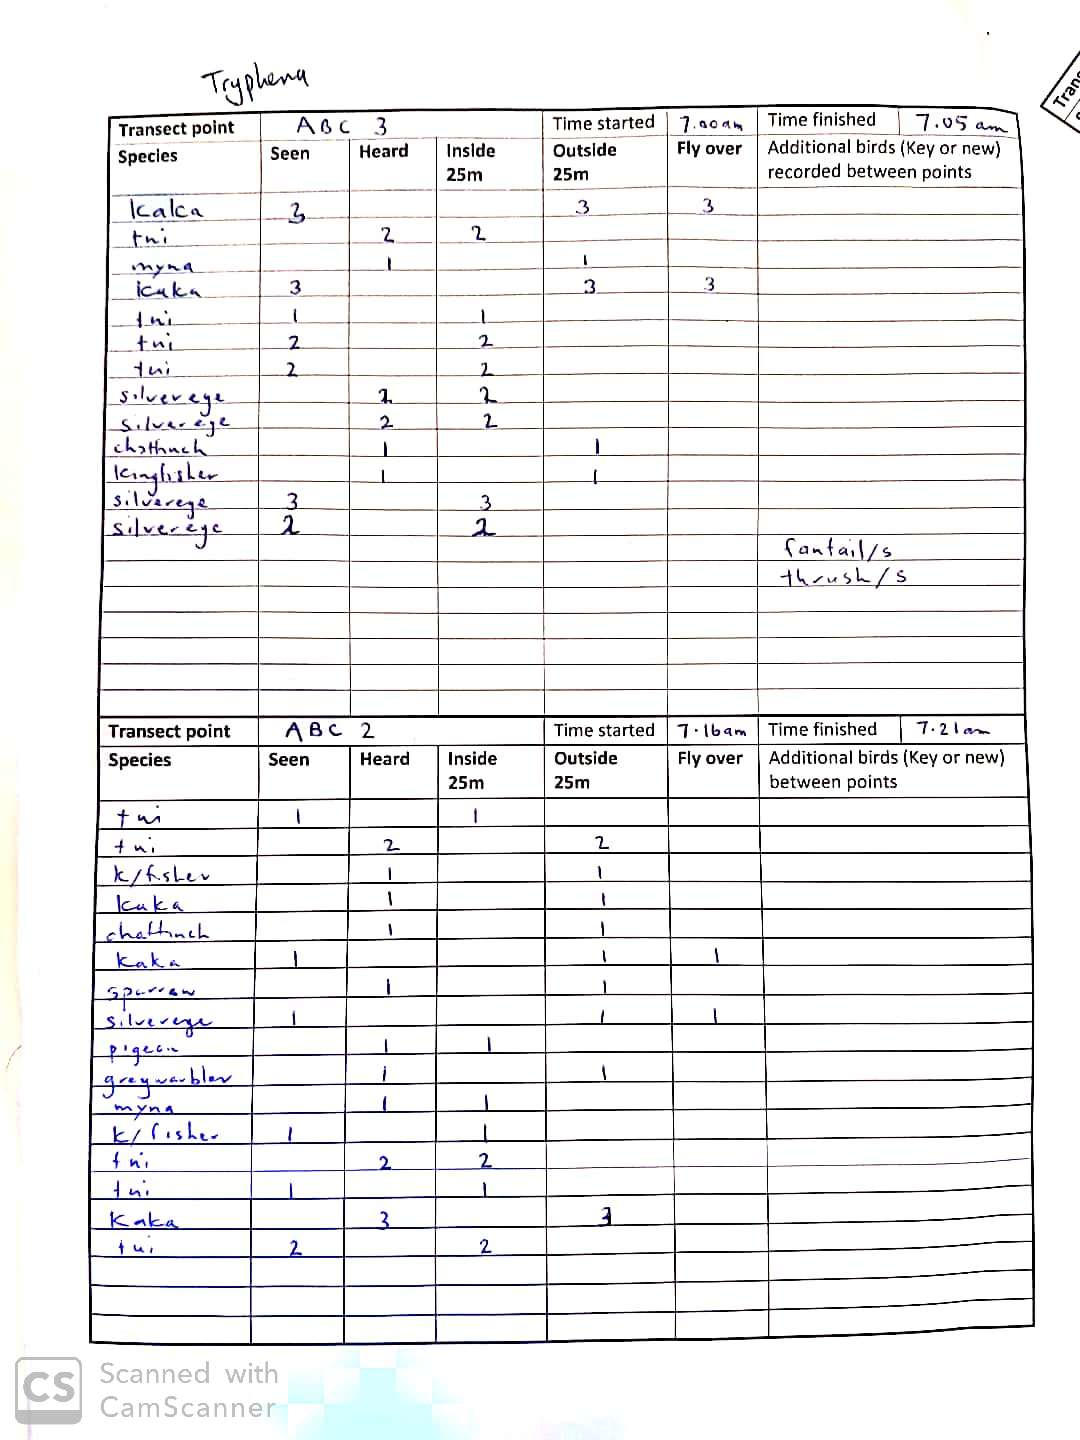 Tryphena
Tran
Transect point ABC 3 Time started 7.00am Time finished 7.05 am
Species Seen Heard Inside 25m Outside 25m Fly over Additional birds (Key or new) recorded between points
kaka 3 3 3
tui 2 2
myna 1 1
kaka 3 3 3
tui 1 1
tui 2 2
tui 2 2
silvereye 2 2
silvereye 2 2
chaffinch 1 1
kingfisher 1 1
silvereye 3 3
silvereye 2 2
fantail/s
thrush/s
Transect point ABC 2 Time started 7.16am Time finished 7.21am
Species Seen Heard Inside 25m Outside 25m Fly over Additional birds (Key or new) between points
tui 1 1
tui 2 2
k/fisher 1 1
kaka 1 1
chaffinch 1 1
kaka 1 1 1
sparrow 1 1
silvereye 1 1 1
pigeon 1 1
greywarbler 1 1
myna 1 1
k/fisher 1 1
tui 2 2
tui 1 1
kaka 3 3
tui 2 2
CS Scanned with
CamScanner